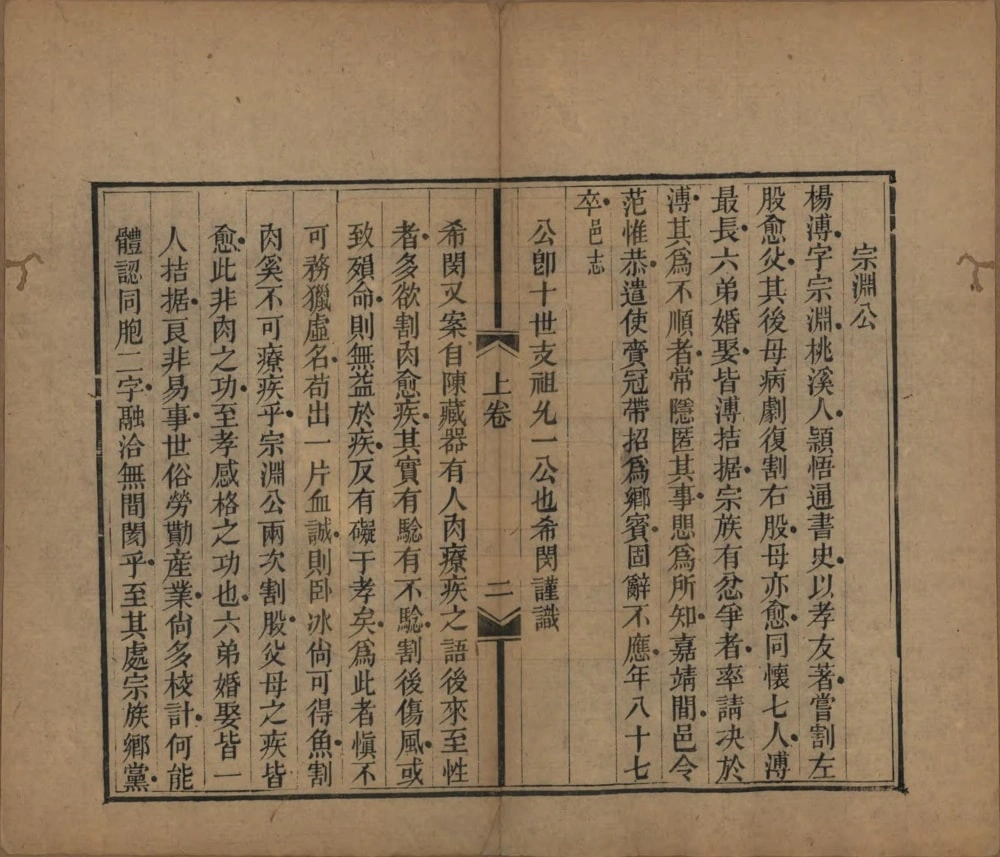 宗淵公
楊溥字宗淵桃溪人穎悟通書史以孝友著嘗割左
股愈父其後母病劇復割右股母亦愈同懷七人溥
最長六弟婚娶皆溥拮据宗族有忿爭者率請决於
溥其爲不順者常隱匿其事恐爲所知嘉靖間邑令
范惟恭遣使賫冠帶招爲鄉賓固辭不應年八十七
卒邑志
公卽十世支祖允一公也希閔謹識
上卷
二
希閔又案自陳藏器有人肉療疾之語後來至性
者多欲割肉愈疾其實有驗有不驗割後傷風或
致殞命則無益於疾反有礙于孝矣爲此者愼不
可務獵虛名苟出一片血誠則卧冰尙可得魚割
肉奚不可療疾乎宗淵公兩次割股父母之疾皆
愈此非肉之功至孝感格之功也六弟婚娶皆一
人拮据良非易事世俗勞勩産業尙多校計何能
體認同胞二字融洽無間閡乎至其處宗族鄉黨